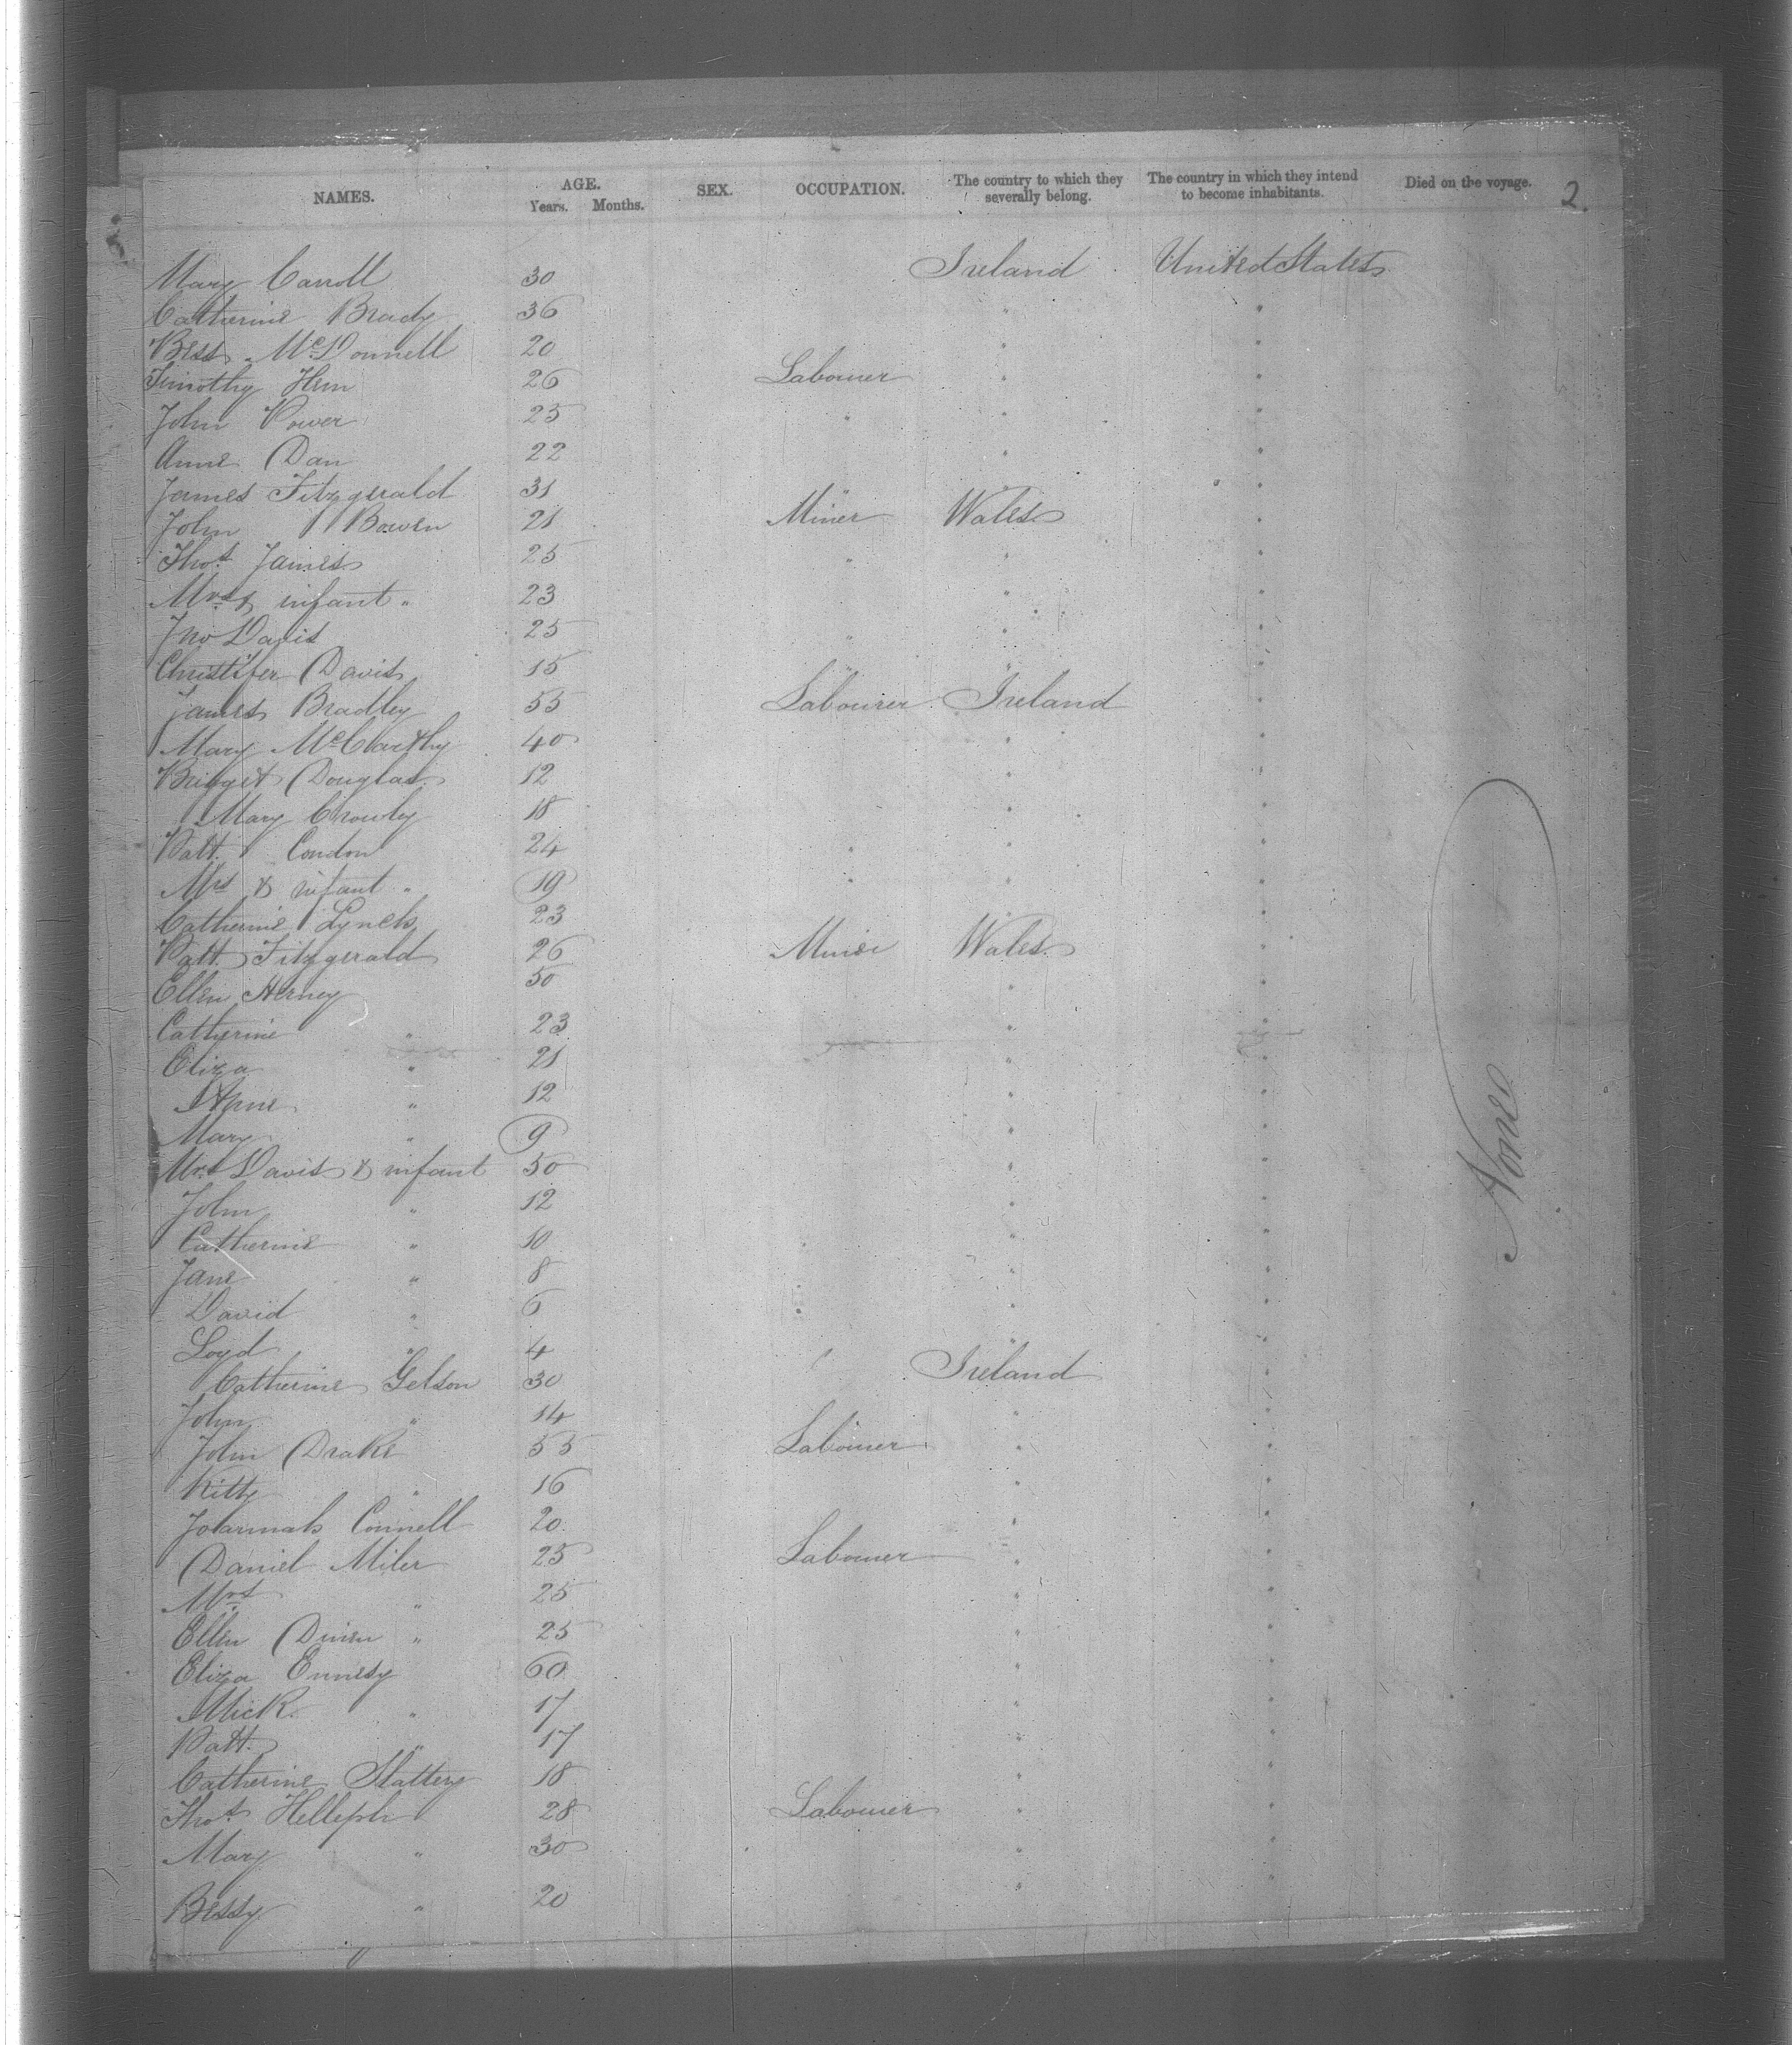 NAMES. AGE. Years. Months. SEX. OCCUPATION. The country to which they severally belong. The country in which they intend to become inhabitants. Died on the voyage. 2.
Mary Carroll 30 Ireland United States
Catherine Brady 36 " "
Bess McDonnell 20 " "
Timothy Hern 26 Labourer " "
John Power 25 " " "
Anne Dan 22 " "
James Fitzgerald 31 " " "
John Bowen 21 Miner Wales "
Thos. James 25 " " "
Mrs & infant " 23 " "
Jno Davis 25 " " "
Christifer Davis 15 " " "
James Bradley 55 Labourer Ireland "
Mary McCarthy 40 " "
Bridget Douglas 12 " "
Mary Crowley 18 " "
Patt. Condon 24 " " "
Mrs & infant " 19 " " "
Catherine Lynch 23 " "
Patt. Fitzgerald 26 Miner Wales "
Ellen Herney 50 " "
Catherine " 23 " "
Eliza " 21 " "
Anne " 12 " "
Mary " 9 " "
Mrs Davis & infant 50 " "
John " 12 " "
Catherine " 10 " "
Jane " 8 " "
David " 6 " "
Loyd " 4 " "
Catherine Gelson 30 Ireland "
John " 14 " "
John Drake 55 Labourer " "
Kitty " 16 " "
Connell 20 " "
Daniel Miler 25 Labourer " "
Mrs " 25 " "
Ellen Dinen " 25 " "
Eliza Ennesy 60 " "
Mick " 17 " "
Patt. " 17 " "
Catherine Slattery 18 " "
Thos. Helleph 28 Labourer " "
Mary " 30 " "
Bessy " 20 " "
None